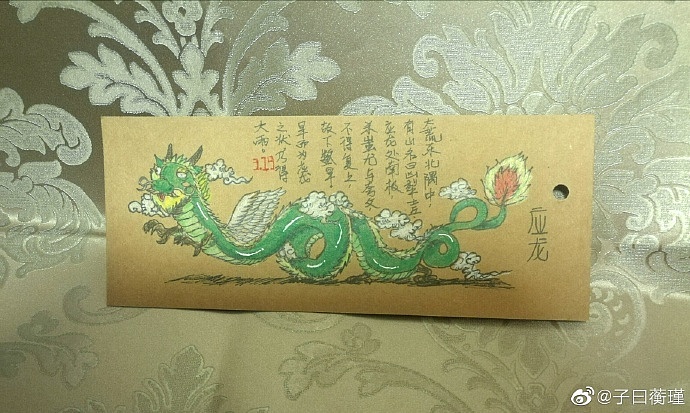 应龙
大荒东北隅中,
有山名曰凶犁土丘
应龙处南极,
杀蚩尤与夸父
不得复上,
故下数旱
旱而为应龙
之状乃得
大雨。
3.19
@子曰蘅瑾